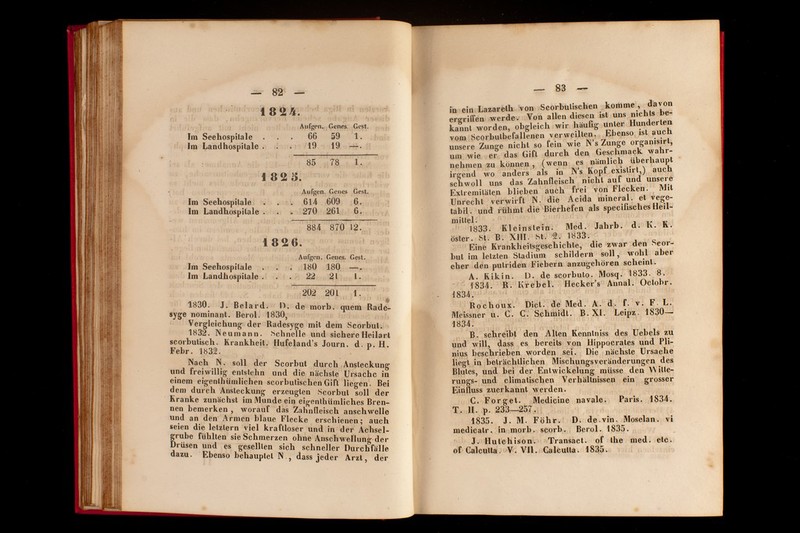 — 82 —
1824.
Aufgen. Genes. Gest.
Im Seehospitale . . . 66 59 1.
Im Landhospitale . . . 19 19 —.
85 78 1.
1825.
Aufgen. Genes. Gest.
Im Seehospitale . . . 614 609 6.
Im Landhospitale . . . 270 261 6.
884 870 12.
1826.
Aufgen. Genes. Gest.
Im Seehospitale . . . 180 180 —.
Im Landhospitale . . . 22 21 1.
202 201 1.
1830. J. Belard. D. de morb. quem Rade-
syge nominant. Berol. 1830,
Vergleichung der Radesyge mit dem Scorbut.
1832. Neumann. Schnelle und sichere Heilart
scorbutisch. Krankheit. Hufeland's Journ. d. p. H.
Febr. 1832.
Nach N. soll der Scorbut durch Ansteckung
und freiwillig entstehn und die nächste Ursache in
einem eigenthümlichen scorbutischen Gift liegen. Bei
dem durch Ansteckung erzeugten Scorbut soll der
Kranke zunächst im Munde ein eigenthümliches Bren-
nen bemerken, worauf das Zahnfleisch anschwelle
und an den Armen blaue Flecke erschienen; auch
seien die letztern viel kraftloser und in der Achsel-
grube fühlten sie Schmerzen ohne Anschwellung der
Drüsen und es gesellten sich schneller Durchfälle
dazu. Ebenso behauptet N., dass jeder Arzt, der
— 83 —
in ein Lazareth von Scorbutischen komme, davon
ergriffen werde. Von allen diesen ist uns nichts be-
kannt worden, obgleich wir häufig unter Hunderten
vom Scorbutbefallenen verweilten. Ebenso ist auch
unsere Zunge nicht so fein wie N's Zunge organisirt,
um wie er das Gift durch den Geschmack wahr-
nehmen zu können, (wenn es nämlich überhaupt
irgend wo anders als in N's Kopf existirt,) auch
schwoll uns das Zahnfleisch nicht auf und unsere
Extremitäten blieben auch frei von Flecken. Mit
Unrecht verwirft N. die Acida mineral. et vege-
tabil. und rühmt die Bierhefen als specifisches Heil-
mittel.
1833. Kleinstein. Med. Jahrb. d. K. K.
öster. St. B. XIII. St. 2. 1833.
Eine Krankheitsgeschichte, die zwar den Scor-
but im letzten Stadium schildern soll, wohl aber
eher den putriden Fiebern anzugehören scheint.
A. Kikin. D. de scorbuto. Mosq. 1833. 8.
1834. R. Krebel. Hecker's Annal. Octobr.
1834.
Rochoux. Dict. de Med. A. d. f. v. F L.
Meissner u. C. C. Schmidt. B. XI. Leipz. 1830—
1834.
B. schreibt den Alten Kenntniss des Uebels zu
und will, dass es bereits von Hippocrates und Pli-
nius beschrieben worden sei. Die nächste Ursache
liegt in beträchtlichen Mischungsveränderungen des
Blutes, und bei der Entwickelung müsse den Witte-
rungs- und climatischen Verhältnissen ein grosser
Einfluss zuerkannt werden.
C. Forget. Medicine navale. Paris. 1834.
T. II. p. 233—257.
1835. J. M. Föhr. D. de vin. Moselan. vi
medicatr. in morb. scorb. Berol. 1835.
J. Hutchison. Transact. of the med. etc.
of Calcutta. V. VII. Calcutta. 1835.